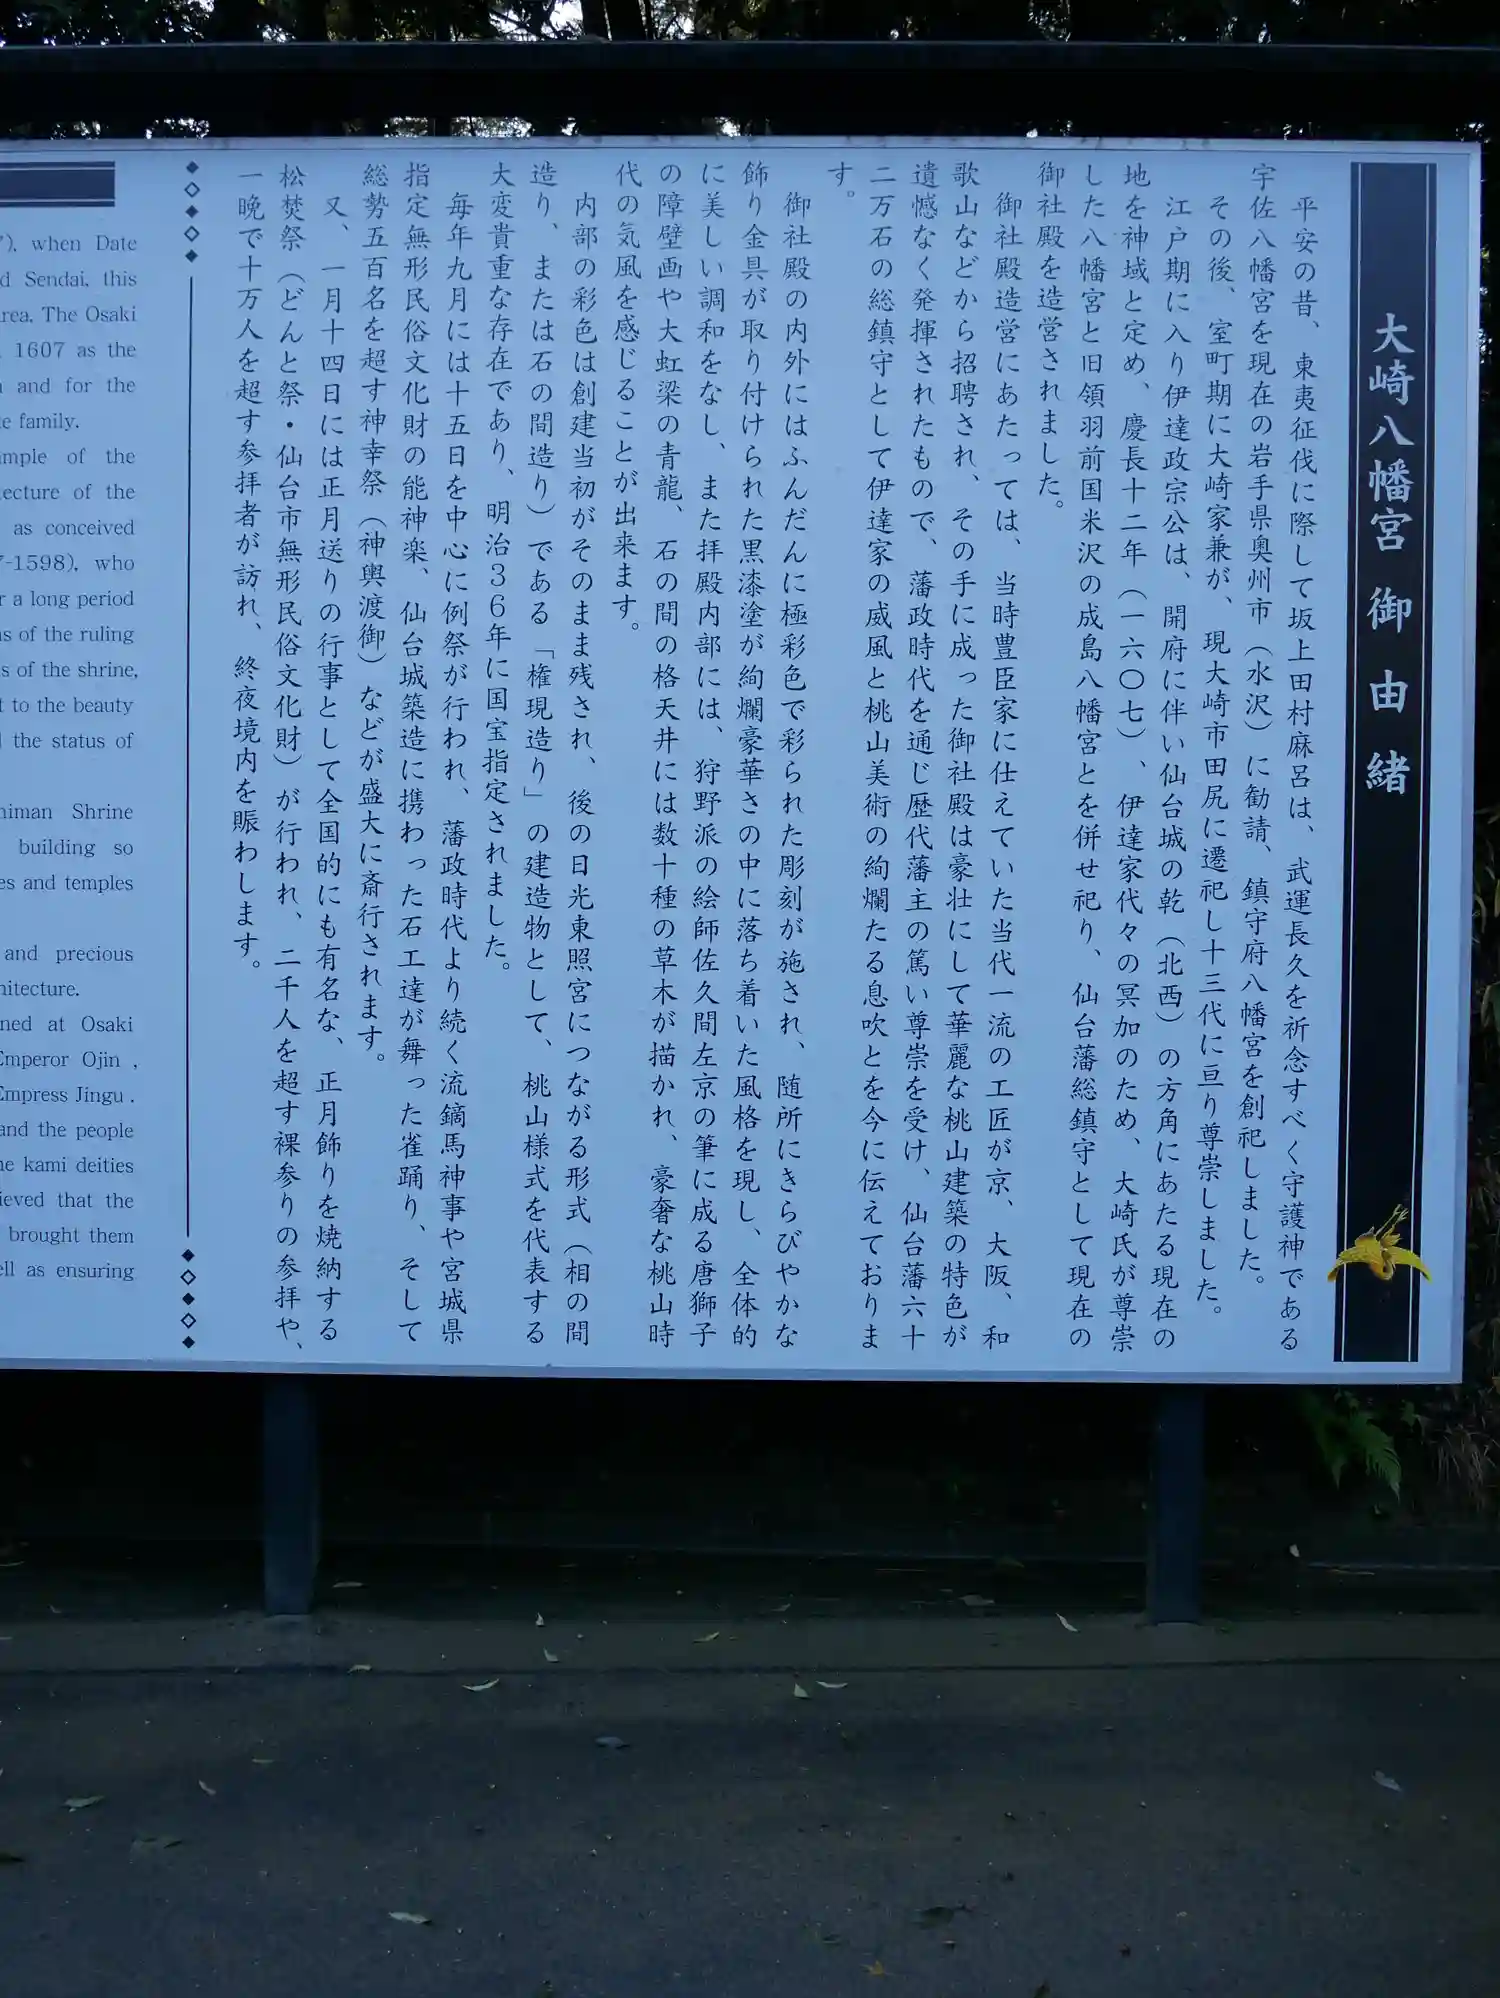 大崎八幡宮 御由緒
平安の昔、東夷征伐に際して坂上田村麻呂は、武運長久を祈念すべく守護神である
宇佐八幡宮を現在の岩手県奥州市（水沢）に勧請、鎮守府八幡宮を創祀しました。
その後、室町期に大崎家兼が、現大崎市田尻に遷祀し十三代に亘り尊崇しました。
江戸期に入り伊達政宗公は、開府に伴い仙台城の乾（北西）の方角にあたる現在の
地を神域と定め、慶長十二年（一六〇七）、伊達家代々の冥加のため、大崎氏が尊崇
した八幡宮と旧領羽前国米沢の成島八幡宮とを併せ祀り、仙台藩総鎮守として現在の
御社殿を造営されました。
御社殿造営にあたっては、当時豊臣家に仕えていた当代一流の工匠が京、大阪、和
歌山などから招聘され、その手に成った御社殿は豪壮にして華麗な桃山建築の特色が
遺憾なく発揮されたもので、藩政時代を通じ歴代藩主の篤い尊崇を受け、仙台藩六十
二万石の総鎮守として伊達家の威風と桃山美術の絢爛たる息吹とを今に伝えておりま
す。
御社殿の内外にはふんだんに極彩色で彩られた彫刻が施され、随所にきらびやかな
飾り金具が取り付けられた黒漆塗が絢爛豪華さの中に落ち着いた風格を現し、全体的
に美しい調和をなし、また拝殿内部には、狩野派の絵師佐久間左京の筆に成る唐獅子
の障壁画や大虹梁の青龍、石の間の格天井には数十種の草木が描かれ、豪奢な桃山時
代の気風を感じることが出来ます。
内部の彩色は創建当初がそのまま残され、後の日光東照宮につながる形式（相の間
造り、または石の間造り）である「権現造り」の建造物として、桃山様式を代表する
大変貴重な存在であり、明治３６年に国宝指定されました。
毎年九月には十五日を中心に例祭が行われ、藩政時代より続く流鏑馬神事や宮城県
指定無形民俗文化財の能神楽、仙台城築造に携わった石工達が舞った雀踊り、そして
総勢五百名を超す神幸祭（神輿渡御）などが盛大に斎行されます。
又、一月十四日には正月送りの行事として全国的にも有名な、正月飾りを焼納する
松焚祭（どんと祭・仙台市無形民俗文化財）が行われ、二千人を超す裸参りの参拝や、
一晩で十万人を超す参拝者が訪れ、終夜境内を賑わします。
7), when Date
d Sendai, this
rea. The Osaki
1607 as the
and for the
e family.
mple of the
ecture of the
as conceived
7-1598), who
r a long period
s of the ruling
s of the shrine,
t to the beauty
the status of
himan Shrine
building so
es and temples
and precious
hitecture.
ned at Osaki
Emperor Ojin ,
Empress Jingu .
and the people
ne kami deities
ieved that the
brought them
ell as ensuring